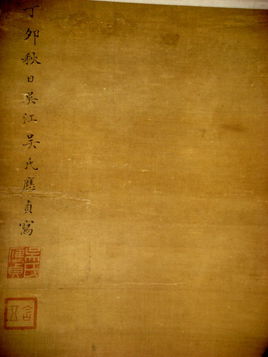 丁卯秋日吳江吳氏應貞寫